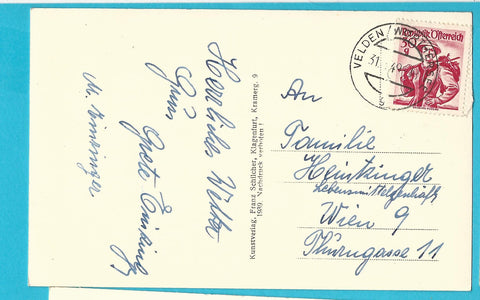 Herrliches Wetter
Grüße
Grete
M.
Kunstverlag, Franz Schilcher, Klagenfurt, Kramerg. 9
1989. Nachdruck verboten!
Republik Österreich
30 g
VELDEN
31. 49
An
Familie
Heintzinger
Lebensmittelgeschäft
Wien 9
Thurngasse 11